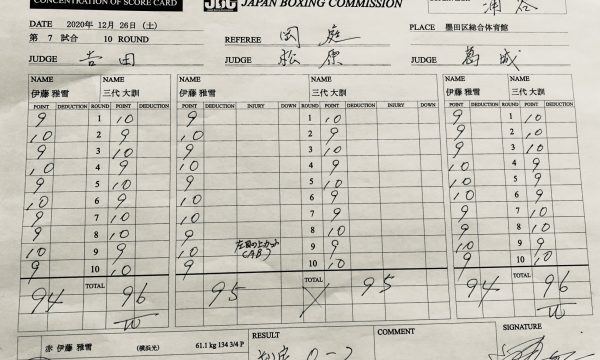 CONCENTRATION OF SCORE CARD
JBC JAPAN BOXING COMMISSION
DATE 2020年 12月 26日（土）
第 7 試合 10 ROUND
REFEREE 岡庭
PLACE 墨田区総合体育館
JUDGE 吉田
JUDGE 松原
JUDGE 葛城
NAME NAME NAME NAME NAME NAME
伊藤 雅雪 三代 大訓 伊藤 雅雪 三代 大訓 伊藤 雅雪 三代 大訓
POINT DEDUCTION ROUND POINT DEDUCTION POINT DEDUCTION INJURY DOWN ROUND POINT DEDUCTION INJURY DOWN POINT DEDUCTION ROUND POINT DEDUCTION
9 1 10 9 1 10 9 1 10
10 2 9 10 2 9 10 2 9
9 3 10 9 3 10 9 3 10
10 4 9 10 4 9 4
9 5 10 9 5 10 5
10 6 9 10 6 9 6
9 7 10 9 7 10 7
9 8 10 10 8 9 8
10 9 9 10 9 9 9
9 10 10 9 10 10 9 10 10
94 TOTAL 96 95 TOTAL 95 94 TOTAL 96
W W
赤 伊藤 雅雪 （横浜光） 61.1 kg 134 3/4 P
RESULT 0-2
COMMENT
SIGNATURE